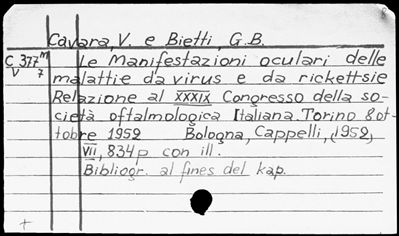 Cavara, V. e Bietti, G.B.
C 377m
V 7
Le Manifestazioni oculari delle
malattie da virus e da rickettsie
Relazione al XXXIX Congresso della so-
cietà oftalmologica Italiana. Torino 8 ot-
tobre 1952 Bologna, Cappelli, (1952)
VII, 834 p con ill.
Bibliogr. al fines del kap.
+